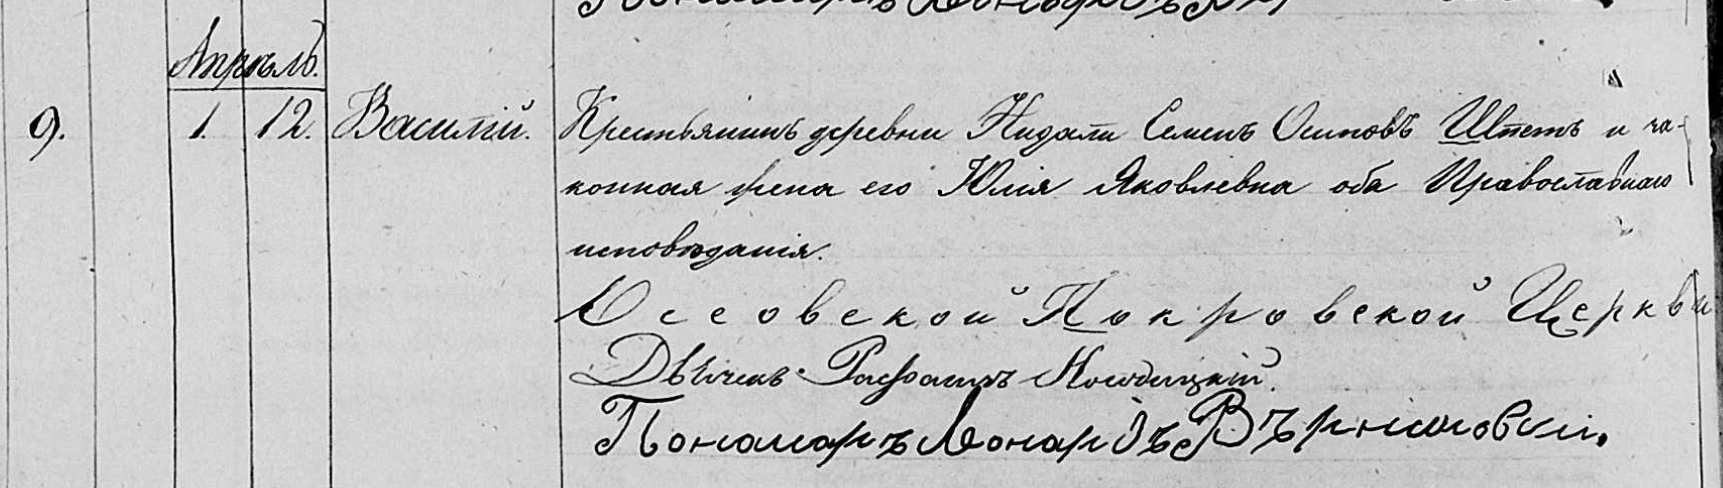 Апрѣль.
9. 1. 12. Василій. Крестьянинъ деревни Нидали Семенъ Осиповъ Шпетъ и за-
конная жена его Юлія Яковлевна оба Православнаго
исповѣданія.
Оссовской Покровской Церкви
Дьячекъ
Пономаръ Леонардъ